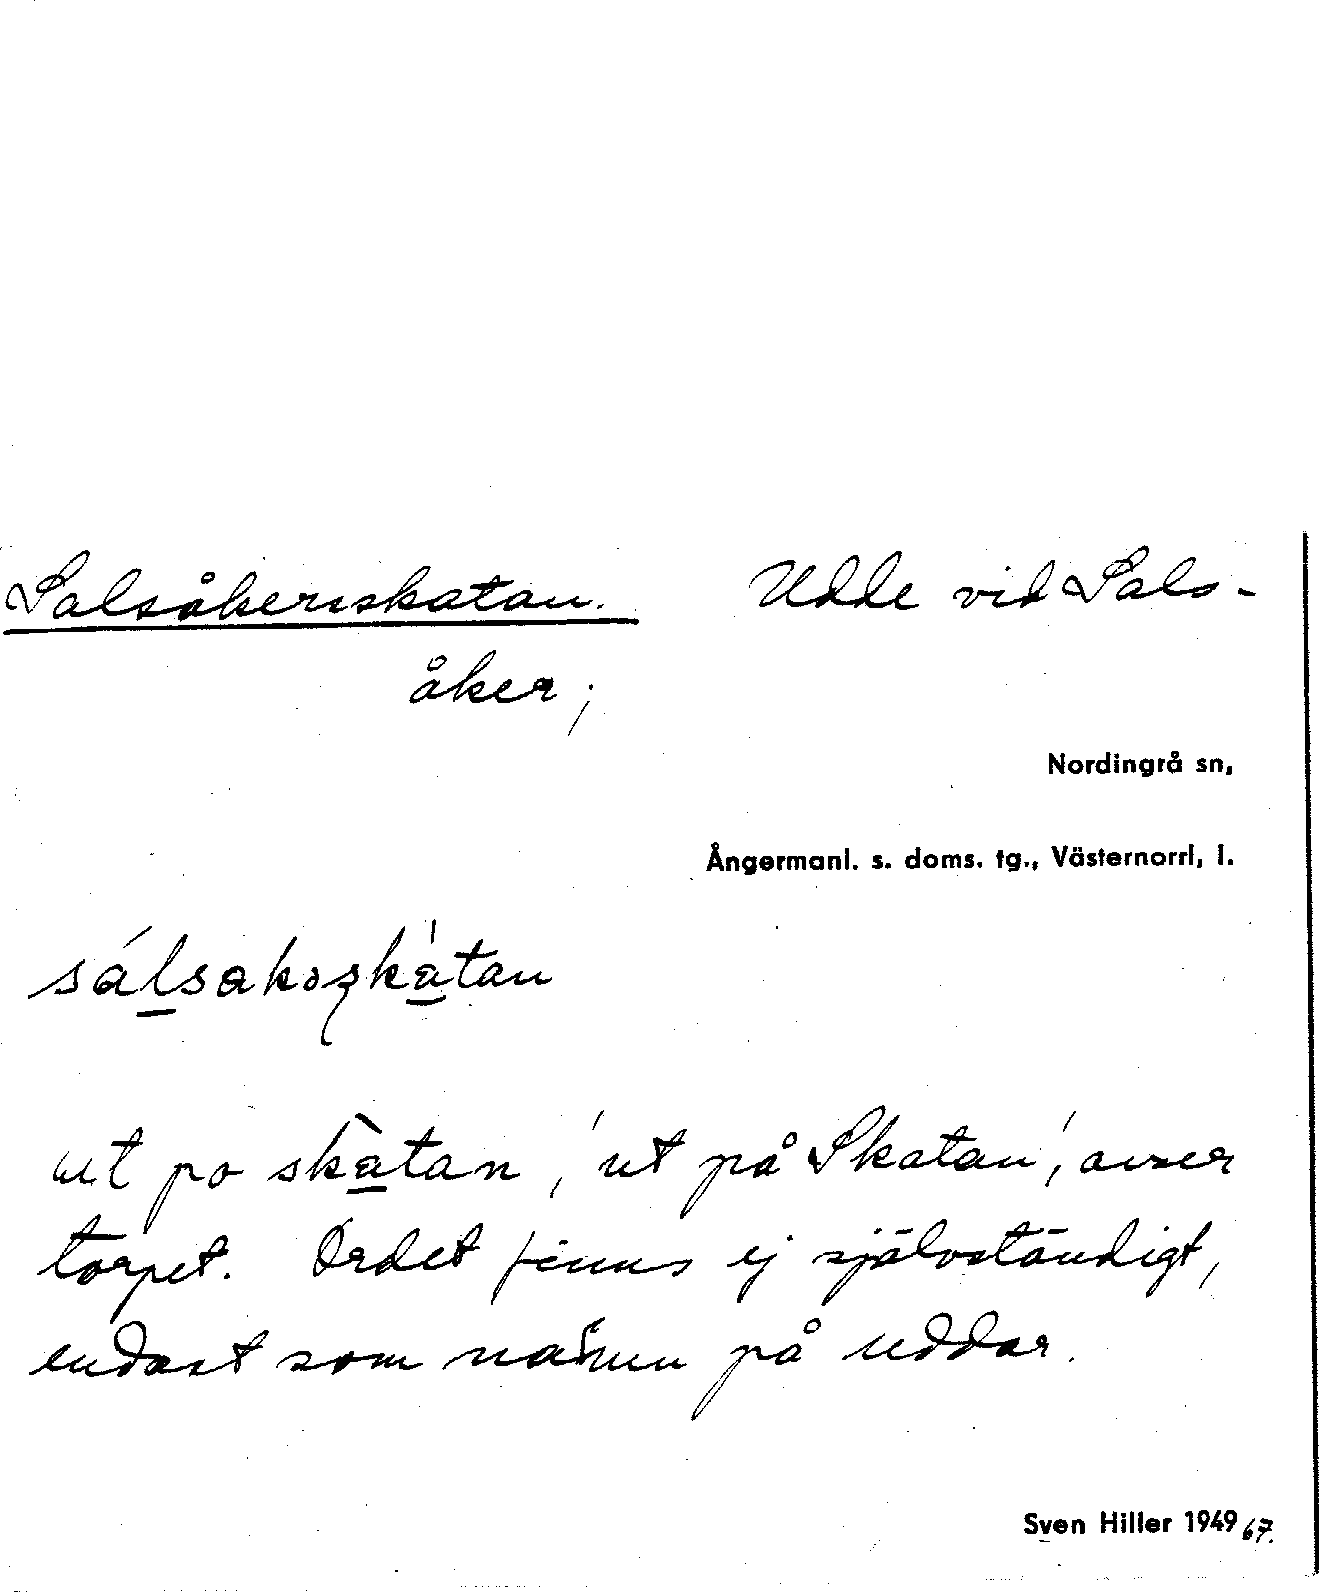 Salsåkersskatan. Udde vid Sals-
åker;
Nordingrå sn,
Ångermanl. s. doms. tg., Västernorrl, l.
ut po skàtan, 'ut på Skatan', avser
torpet. Ordet finns ej självständigt,
endast som namn på uddar.
Sven Hiller 1949 67.